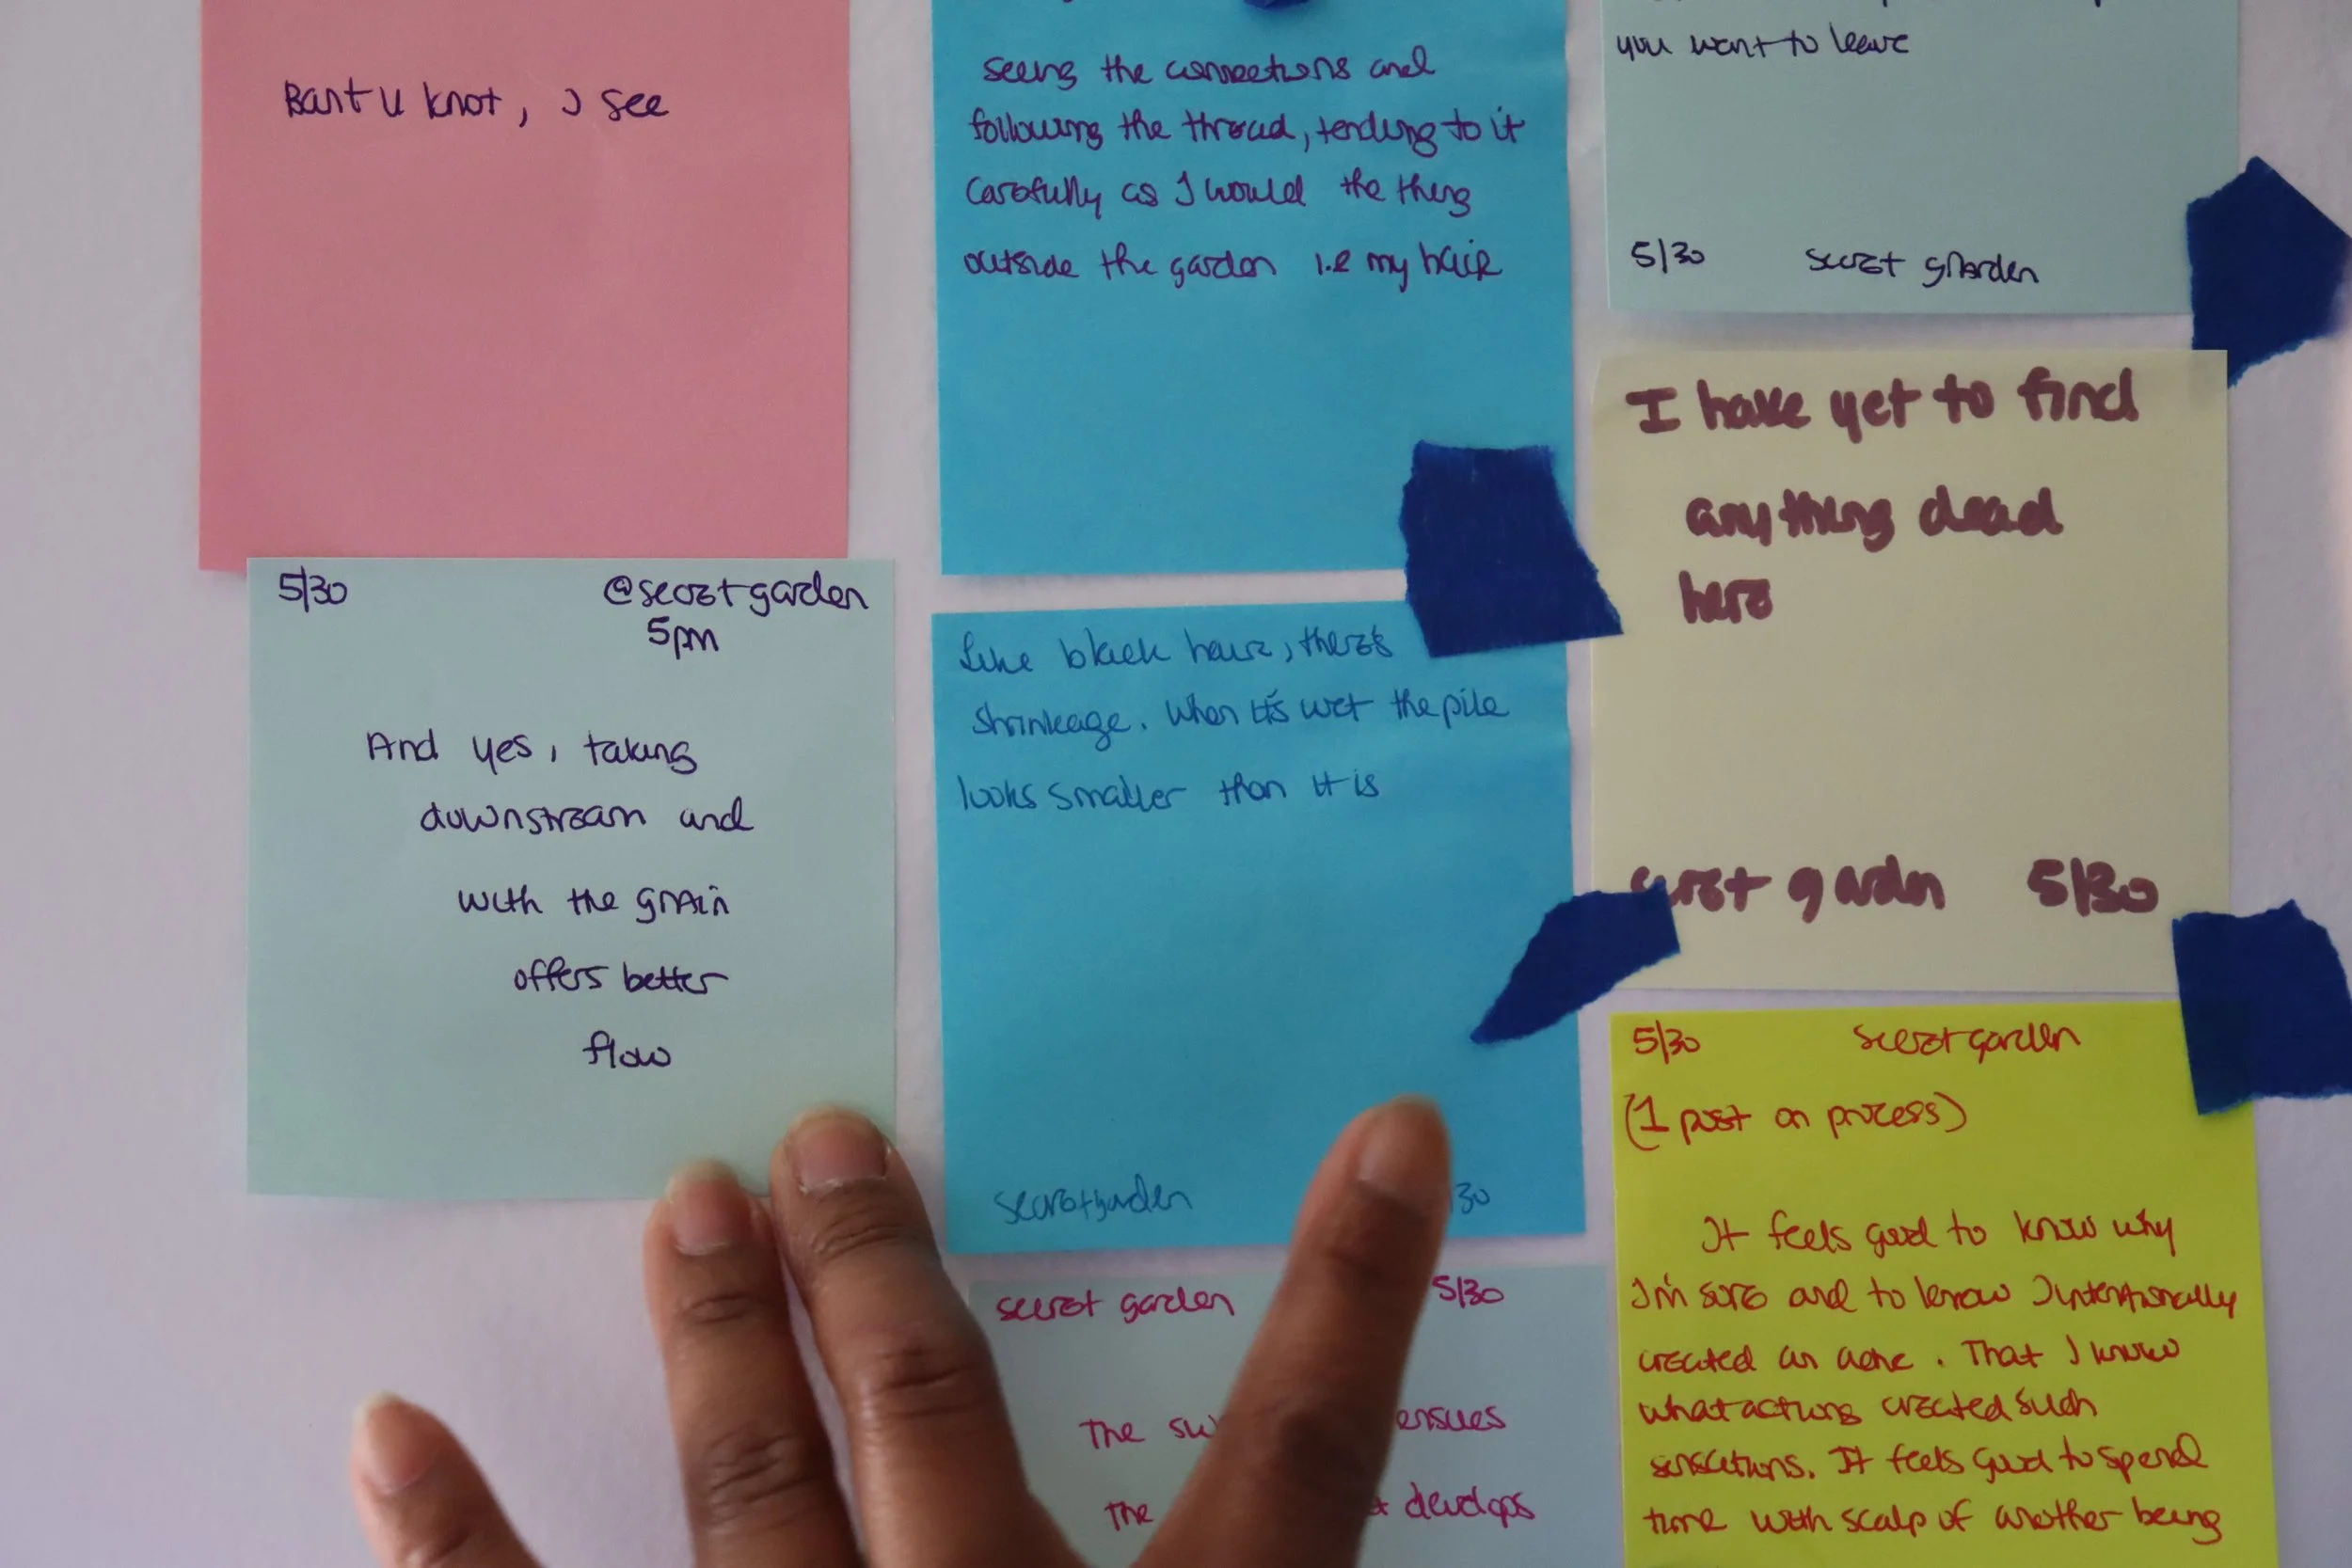 Bantu knot, I see
5/30 @secret garden
5pm
And yes, taking
downstream and
with the grain
offers better
flow
seeing the connections and
following the thread, tending to it
carefully as I would the thing
outside the garden i.e my hair
Like black hair, there's
shrinkage. When it's wet the pile
looks smaller than it is
secret garden 30
secret garden 5/30
The ensues
The develops
you want to leave
5/30 secret garden
I have yet to find
anything dead
here
secret garden 5/30
5/30 secret garden
(1 post on process)
It feels good to know why
I'm sore and to know I intentionally
created an ache. That I know
what actions created such
sensations. It feels good to spend
time with scalp of another being